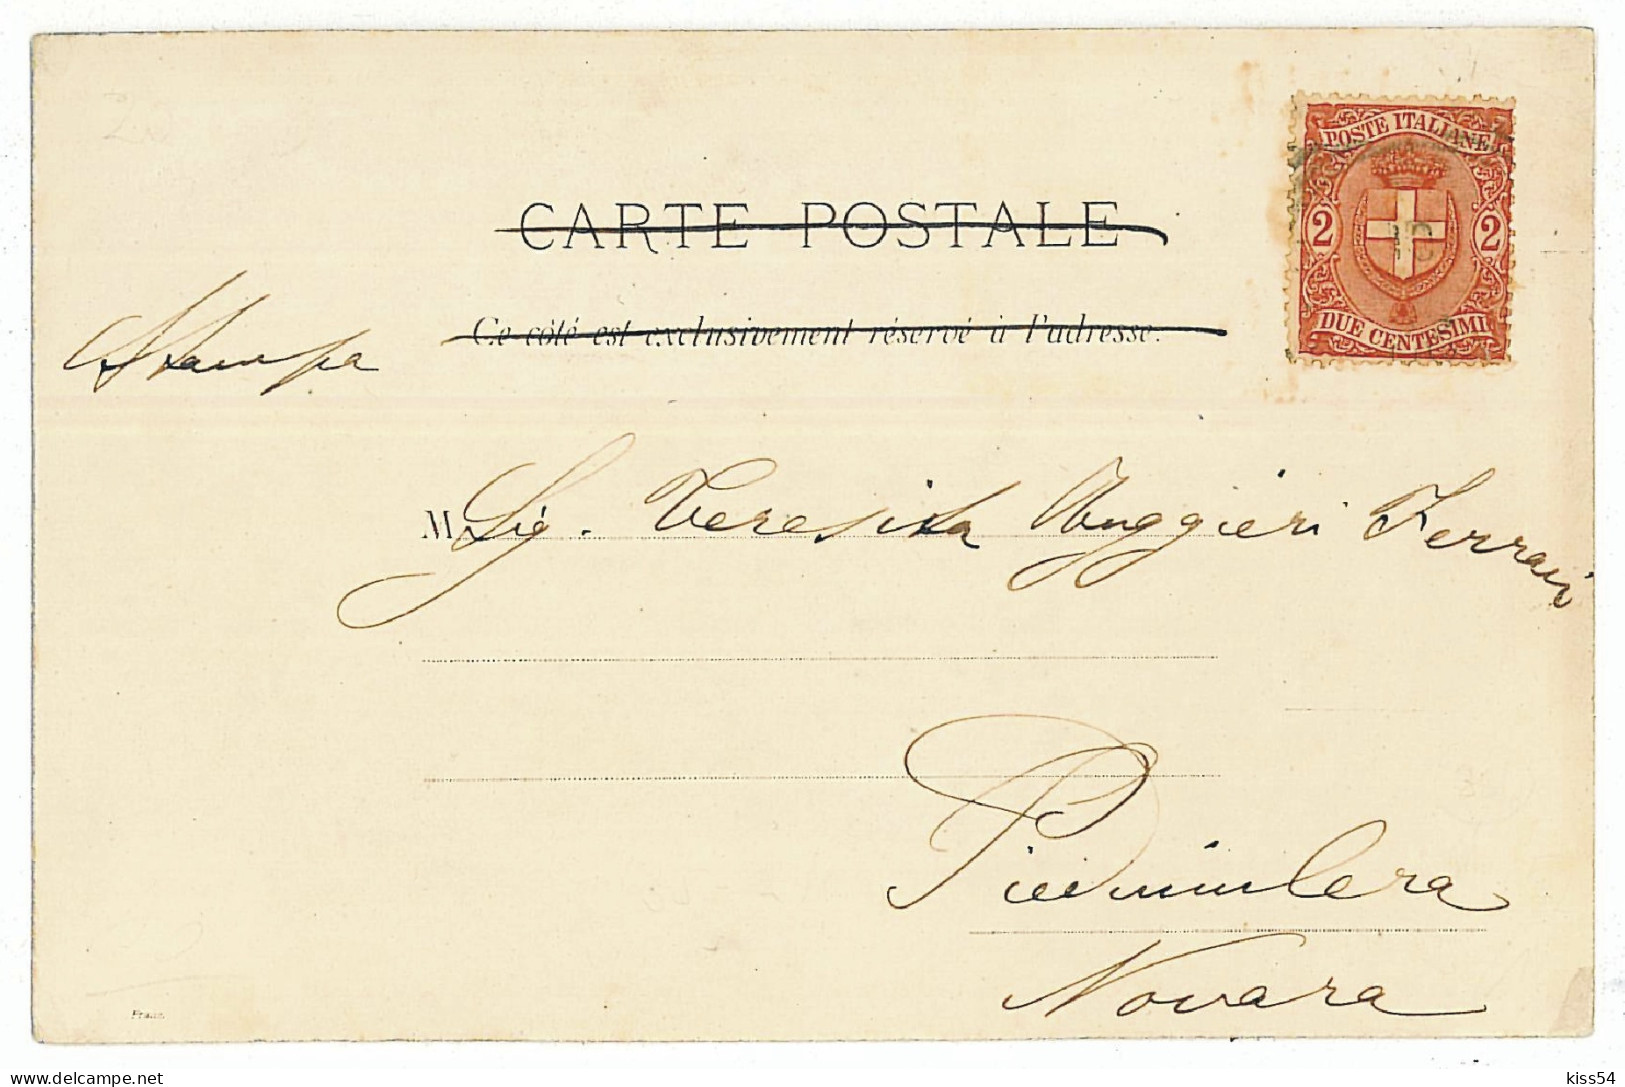 POSTE ITALIANE
2 2
DUE CENTESIMI
CARTE POSTALE
Ce côté est exclusivement réservé à l'adresse.
Stampa
M Sig. Teresita Ruggieri Ferrari
Piedimulera
Novara
Franc.
delcampe.net
kiss54